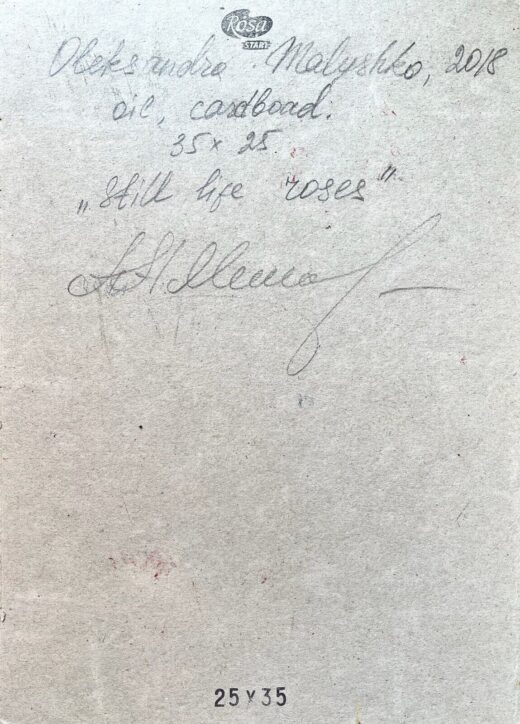 Rosa
START
Oleksandra Malyshko, 2018
oil, cardboad.
35 x 25
„Still life roses"
25 x 35